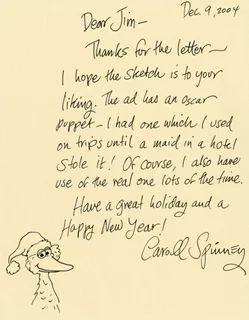 Dec. 9, 2004
Dear Jim-
Thanks for the letter-
I hope the sketch is to your
liking. The ad has an oscar
puppet- I had one which I used
on trips until a maid in a hotel
Stole it! Of course, I also have
use of the real one lots of the time.
Have a great holiday and a
Happy New Year!
Caroll Spinney